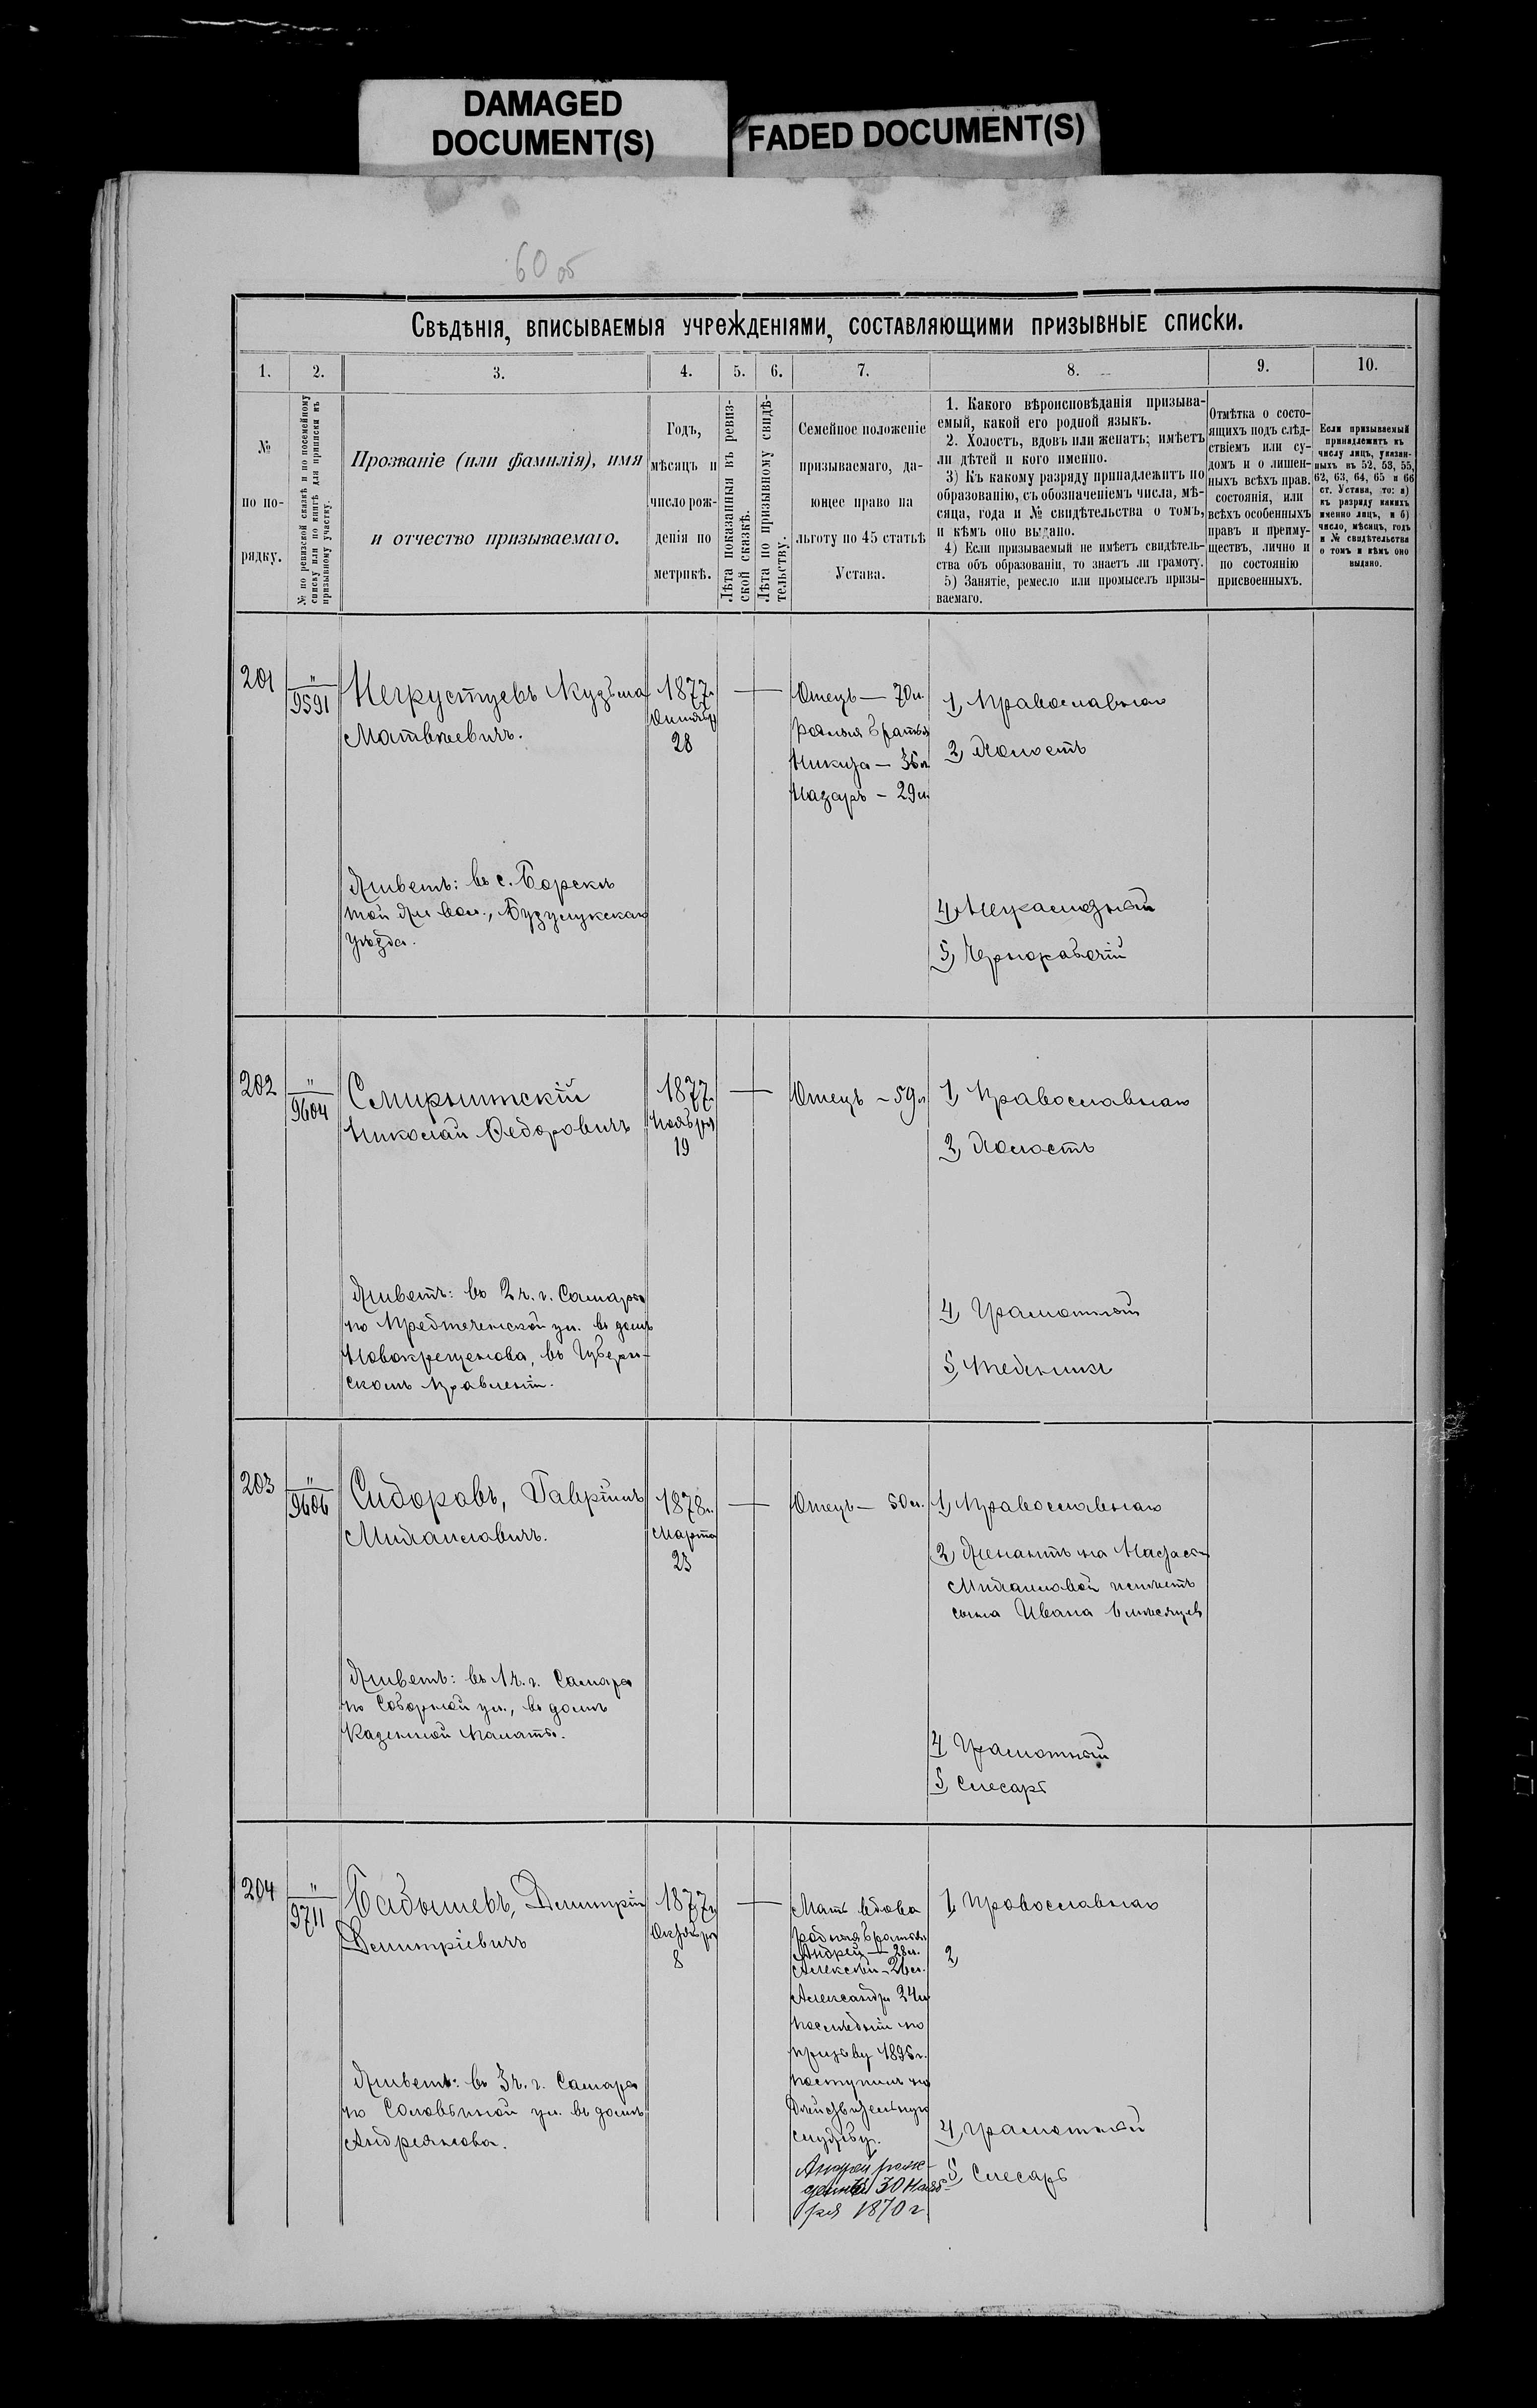 DAMAGED
DOCUMENT(S)
FADED DOCUMENT(S)
60 об
Свѣдѣнія, вписываемыя учрежденіями, составляющими призывные списки.
1. 2. 3. 4. 5. 6. 7. 8. 9. 10.
№
по по-
рядку.
№ по ревизской сказкѣ и по посемейному
списку или по книгѣ для приписки къ
призывному участку.
Прозваніе (или фамилія), имя
и отчество призываемаго.
Годъ,
мѣсяцъ и
число рож-
денія по
метрикѣ.
Лѣта показанныя въ ревиз-
ской сказкѣ.
Лѣта по призывному свидѣ-
тельству.
Семейное положеніе
призываемаго, да-
ющее право на
льготу по 45 статьѣ
Устава.
1. Какого вѣроисповѣданія призыва-
емый, какой его родной языкъ.
2. Холостъ, вдовъ или женатъ; имѣетъ
ли дѣтей и кого именно.
3) Къ какому разряду принадлежитъ по
образованію, съ обозначеніемъ числа, мѣ-
сяца, года и № свидѣтельства о томъ,
и кѣмъ оно выдано.
4) Если призываемый не имѣетъ свидѣтель-
ства объ образованіи, то знаетъ ли грамоту.
5) Занятіе, ремесло или промыселъ призы-
ваемаго.
Отмѣтка о состо-
ящихъ подъ слѣд-
ствіемъ или су-
домъ и о лишен-
ныхъ всѣхъ прав.
состоянія, или
всѣхъ особенныхъ
правъ и преиму-
ществъ, лично и
по состоянію
присвоенныхъ.
Если призываемый
принадлежитъ къ
числу лицъ, указан-
ныхъ въ 52, 53, 55,
62, 63, 64, 65 и 66
ст. Устава, то: а)
къ разряду какихъ
именно лицъ, и б)
число, мѣсяцъ, годъ
и № свидѣтельства
о томъ и кѣмъ оно
выдано.
201
"
9591
Негрустуевъ Кузьма
Матвѣевичъ.
1877г.
Октября
28
Отецъ — 70 л.
родныя братья
Никита — 36 л.
Назаръ — 29 л.
1, Православнаго
2, Холостъ
Живетъ: въ с. Борскѣ
той же вол., Бузулукскаго
уѣзда.
4, Неграмотный
5, Чернорабочій
202
"
9604
Смирнитскій
Николай Ѳедоровичъ
1877г.
Ноября
19
Отецъ — 59 л.
1, Православнаго
2, Холостъ
Живетъ: во 2 ч. г. Самары
по Предтеченской ул. въ домѣ
Новокрещенова, въ Губерн-
скомъ Правленіи.
4, Грамотный
5,
203
"
9606
Сидоровъ, Гавріилъ
Михайловичъ.
1878г.
Марта
23
Отецъ — 50 л.
1, Православнаго
2, Женатъ на
Михайловой имѣетъ
сына Ивана 6 мѣсяцевъ
Живетъ: въ 1 ч. г. Самары
по Соборной ул., въ домѣ
Казенной Палаты.
4, Грамотный
5, Слесарь
204
"
9711
Бабышевъ, Дмитрій
Дмитріевичъ
1877г.
Октября
8
Мать вдова
родныя братья
Андрей — 28 л.
Алексѣй — 26 л.
Александръ 24 л.
послѣдній по
призыву 1895 г.
поступилъ на
дѣйствительную
службу.
Андрей рож-
денъ 30 Нояб-
ря 1870 г.
1, Православнаго
2,
Живетъ: въ 3 ч. г. Самары
по Соловьиной ул. въ домѣ
Андреянова.
4, Грамотный
5, Слесарь